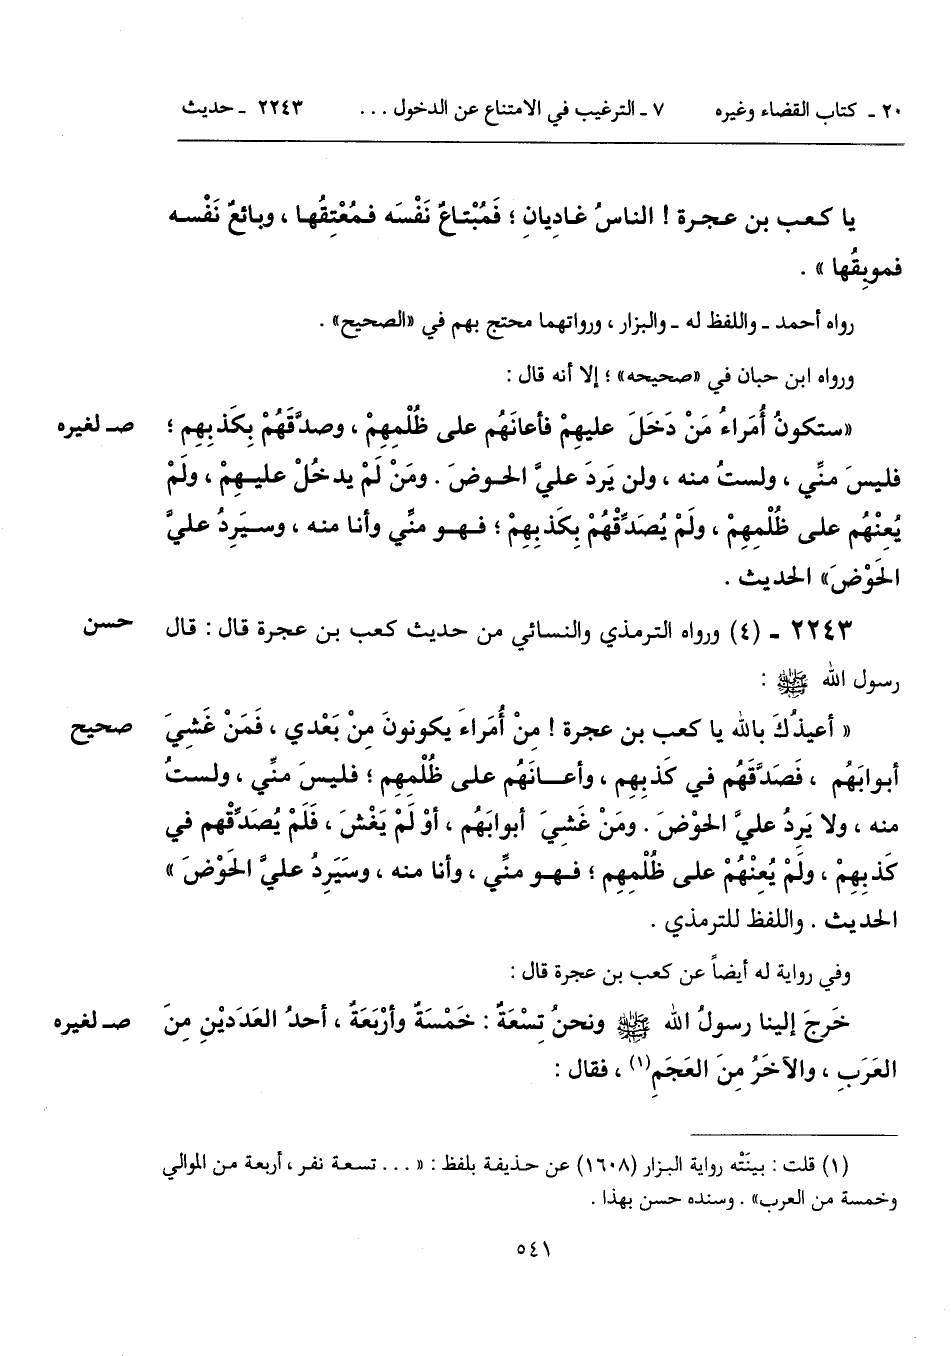 ٢٠ - كتاب القضاء وغيره ٧ - الترغيب في الامتناع عن الدخول ... ٢٢٤٣ - حديث
يا كعب بن عجرة ! الناسُ غاديانِ ؛ فَمُبْتاعٌ نَفْسَه فمُعْتِقُها ، وبائعٌ نَفْسه
فموبِقُها » .
رواه أحمد - واللفظ له - والبزار ، ورواتهما محتج بهم في «الصحيح» .
ورواه ابن حبان في «صحيحه» ؛ إلا أنه قال :
«ستكونُ أُمَراءُ مَنْ دَخَلَ عليهِمْ فأعانَهُم على ظُلْمِهِمْ ، وصدَّقَهُمْ بِكَذبِهِم ؛ صـ لغيره
فليسَ منِّي ، ولستُ منه ، ولن يَرِدَ عليَّ الحوضَ . ومَنْ لَمْ يدخُلْ عليهِمْ ، ولَمْ
يُعِنْهُم على ظُلْمِهِمْ ، ولَمْ يُصَدِّقْهُمْ بِكَذبِهِمْ ؛ فهو منِّي وأنا منه ، وسيَرِدُ عليَّ
الحَوْضَ» الحديث .
٢٢٤٣ - (٤) ورواه الترمذي والنسائي من حديث كعب بن عجرة قال : قال حسن
رسول الله ﷺ :
« أعيذُكَ بالله يا كعب بن عجرة ! مِنْ أُمَراءَ يكونونَ مِنْ بَعْدي ، فَمَنْ غَشِيَ صحيح
أبوابَهُم ، فَصَدَّقَهُم في كَذبِهِم ، وأعانَهُم على ظُلْمِهِم ؛ فليسَ منِّي ، ولستُ
منه ، ولا يَرِدُ عليَّ الحوْضَ . ومَنْ غَشِيَ أبوابَهُم ، أوْ لَمْ يَغْشَ ، فَلَمْ يُصَدِّقْهم في
كَذبِهِمْ ، ولَمْ يُعِنْهُمْ على ظُلْمِهِم ؛ فهو منِّي ، وأنا منه ، وسَيَرِدُ عليَّ الحَوْضَ »
الحديث . واللفظ للترمذي .
وفي رواية له أيضاً عن كعب بن عجرة قال :
خَرجَ إلينا رسولُ الله ﷺ ونحنُ تِسْعَةٌ : خَمْسَةٌ وأرْبَعَةٌ ، أحدُ العَدَدَيْنِ مِنَ صـ لغيره
العَرَبِ ، والآخَرُ مِنَ العَجَمِ(١) ، فقال :
(١) قلت : بينَتْه رواية البزار (١٦٠٨) عن حذيفة بلفظ : « ... تسعة نفر ، أربعة من الموالي
وخمسة من العرب» . وسنده حسن بهذا .
٥٤١